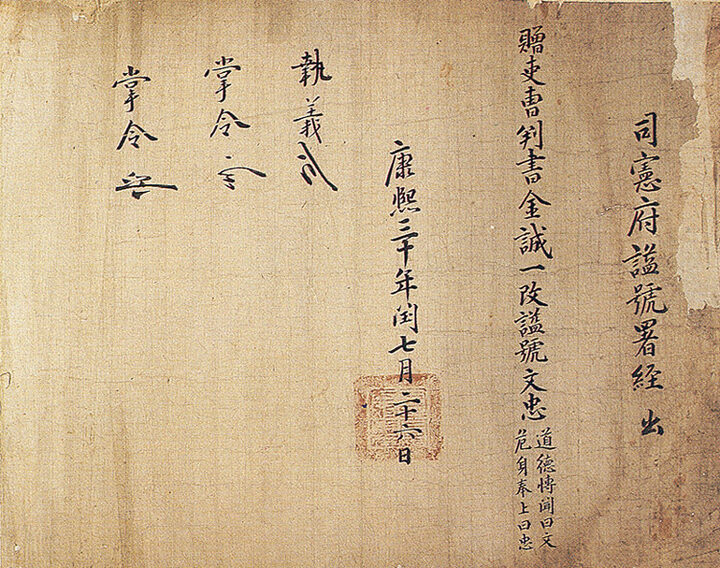 司憲府謚號署經出
贈吏曹判書金誠一改謚號文忠
道德愽聞曰文
危身奉上曰忠
康熙三十年閏七月二十六日
執義
掌令
掌令